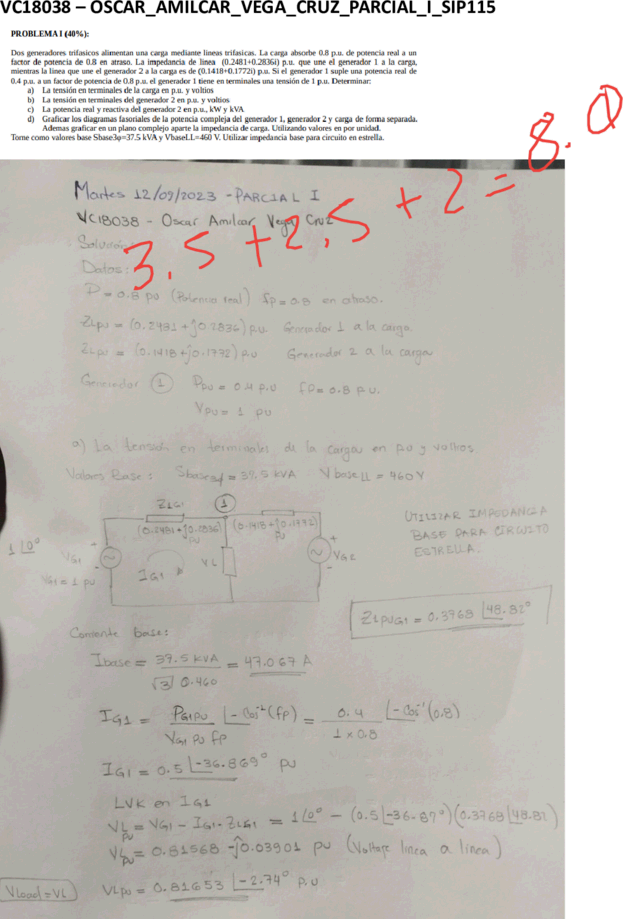 VC18038 – OSCAR_AMILCAR_VEGA_CRUZ_PARCIAL_I_SIP115
PROBLEMA I (40%):
Dos generadores trifasicos alimentan una carga mediante lineas trifasicas. La carga absorbe 0.8 p.u. de potencia real a un
factor de potencia de 0.8 en atraso. La impedancia de linea (0.2481+0.2836i) p.u. que une el generador 1 a la carga,
mientras la linea que une el generador 2 a la carga es de (0.1418+0.1772i) p.u. Si el generador 1 suple una potencia real de
0.4 p.u. a un factor de potencia de 0.8 p.u. el generador 1 tiene en terminales una tensión de 1 p.u. Determinar:
a) La tensión en terminales de la carga en p.u. y voltios
b) La tensión en terminales del generador 2 en p.u. y voltios
c) La potencia real y reactiva del generador 2 en p.u., kW y kVA
d) Graficar los diagramas fasoriales de la potencia compleja del generador 1, generador 2 y carga de forma separada.
Ademas graficar en un plano complejo aparte la impedancia de carga. Utilizando valores en por unidad.
Tome como valores base Sbase3φ=37.5 kVA y VbaseLL=460 V. Utilizar impedancia base para circuito en estrella.
3.5 + 2.5 + 2 = 8.0
Martes 12/09/2023 - PARCIAL I
VC18038 - Oscar Amilcar Vega Cruz
Solución
Datos:
P = 0.8 pu (Potencia real) fp = 0.8 en atraso.
ZLpu = (0.2481 + j0.2836) p.u. Generador 1 a la carga.
ZLpu = (0.1418 + j0.1772) p.u Generador 2 a la carga
Generador 1 Ppu = 0.4 p.u fp = 0.8 p.u.
Vpu = 1 pu
a) La tensión en terminales de la carga en pu y voltios.
Valores Base: Sbase3φ = 37.5 kVA V baseLL = 460 V
ZLG1 1
(0.2481 + j0.2836) pu (0.1418 + j0.1772) pu
UTILIZAR IMPEDANCIA
BASE PARA CIRCUITO
ESTRELLA.
1∠0° VG1 VL VG2
VG1 = 1 pu IG1
ZLpuG1 = 0.3768 ∠48.82°
Corriente base:
Ibase = 37.5 kVA / √3 0.460 = 47.067 A
IG1 = PG1pu / VG1 pu fp ∠-Cos⁻¹(fp) = 0.4 / 1 x 0.8 ∠-Cos⁻¹(0.8)
IG1 = 0.5 ∠-36.869° pu
LVK en IG1
VLpu = VG1 - IG1·ZLG1 = 1∠0° - (0.5∠-36.87°)(0.3768∠48.82)
VLpu = 0.81568 - j0.03901 pu (Voltaje linea a linea)
VLoad = VL VLpu = 0.81653 ∠-2.74° p.u